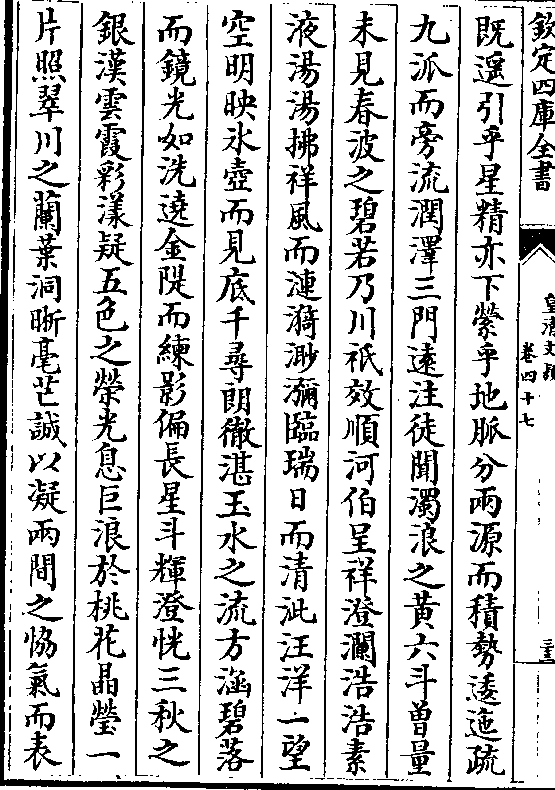 欽定四庫全書
皇清文穎
卷四十七
既遥引乎星精亦下縈乎地脈分兩源而積勢逶迤疏
九派而旁流潤澤三門遠注徒聞濁浪之黃六斗曾量
未見春波之碧若乃川祇效順河伯呈祥澄瀾浩浩素
液湯湯拂祥風而漣漪渺瀰臨瑞日而清泚汪洋一望
空明映氷壺而見底千尋朗徹湛玉水之流方涵碧落
而鏡光如洗遶金隄而練影偏長星斗輝澄恍三秋之
銀漢雲霞彩漾疑五色之榮光息巨浪於桃花晶瑩一
片照翠川之蘭葉洞晰毫芒誠以凝兩間之恊氣而表